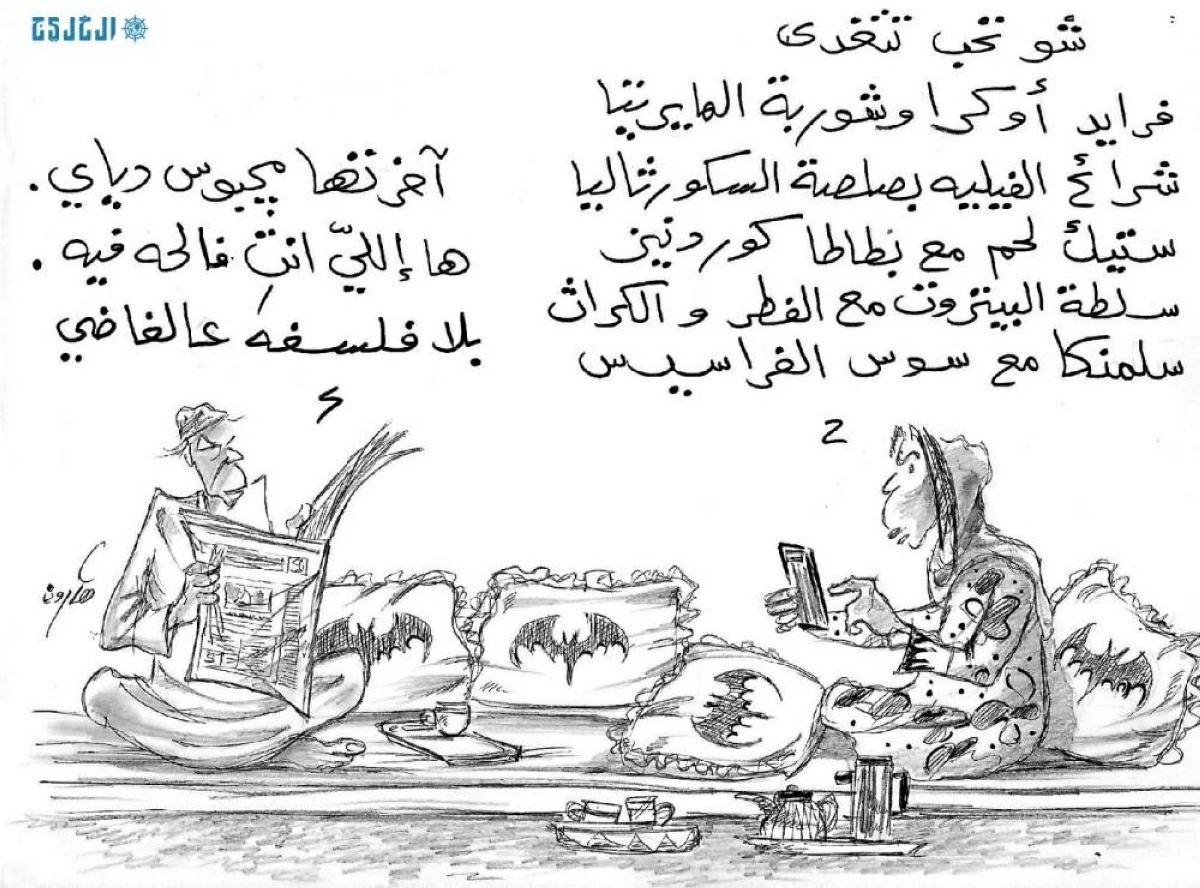 الخليج
شو تحب تتغدى
فرايد أوكرا وشوربة الهايبريتيا
شرائح الفيليه بصلصة السكورثاليا
ستيك لحم مع بطاطا كوردنيز
سلطة البيتروت مع الفطر و الكراث
سلمنكا مع سوس الفراسيس
2
آخرتها مجبوس دياي .
ها إللي انتِ فالحه فيه .
بلا فلسفه عالفاضي
هارون